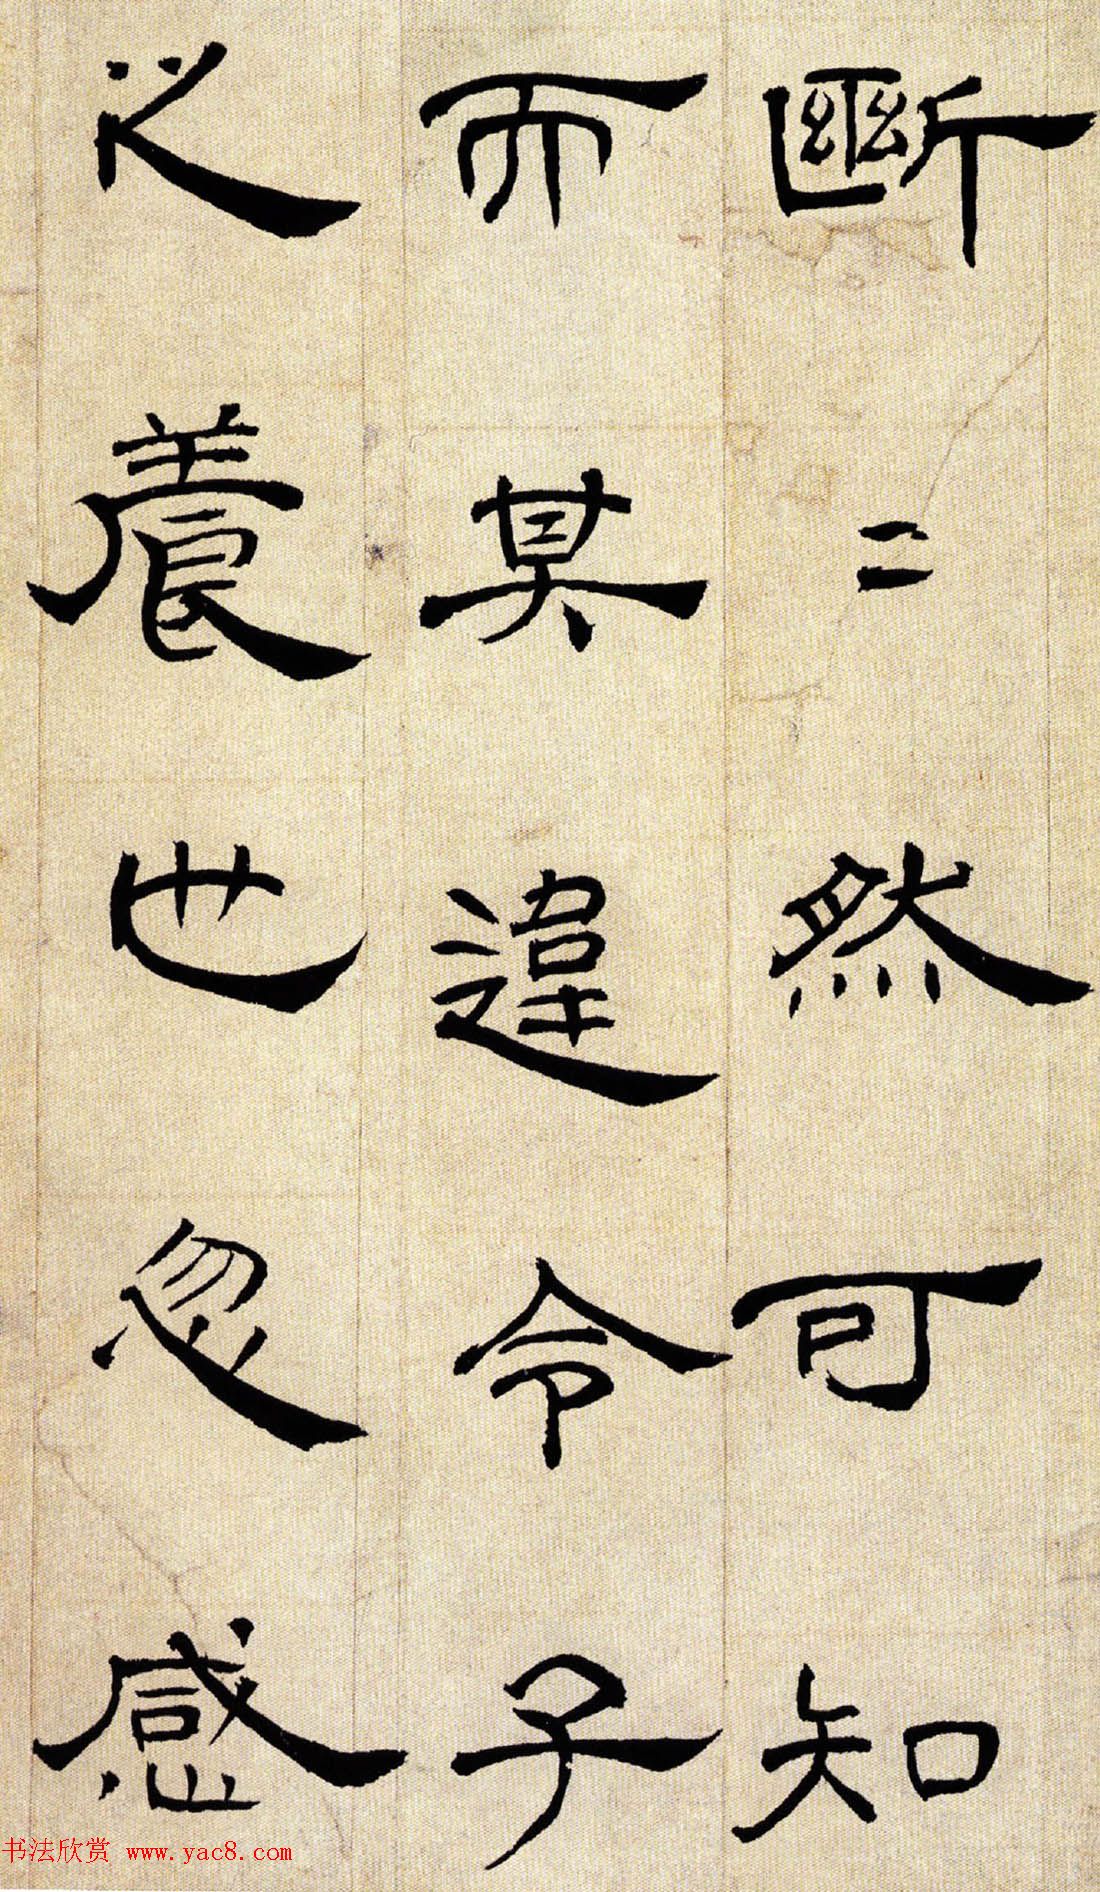 斷二然可知
而其違令子
之養也忽感
书法欣赏 www.yac8.com